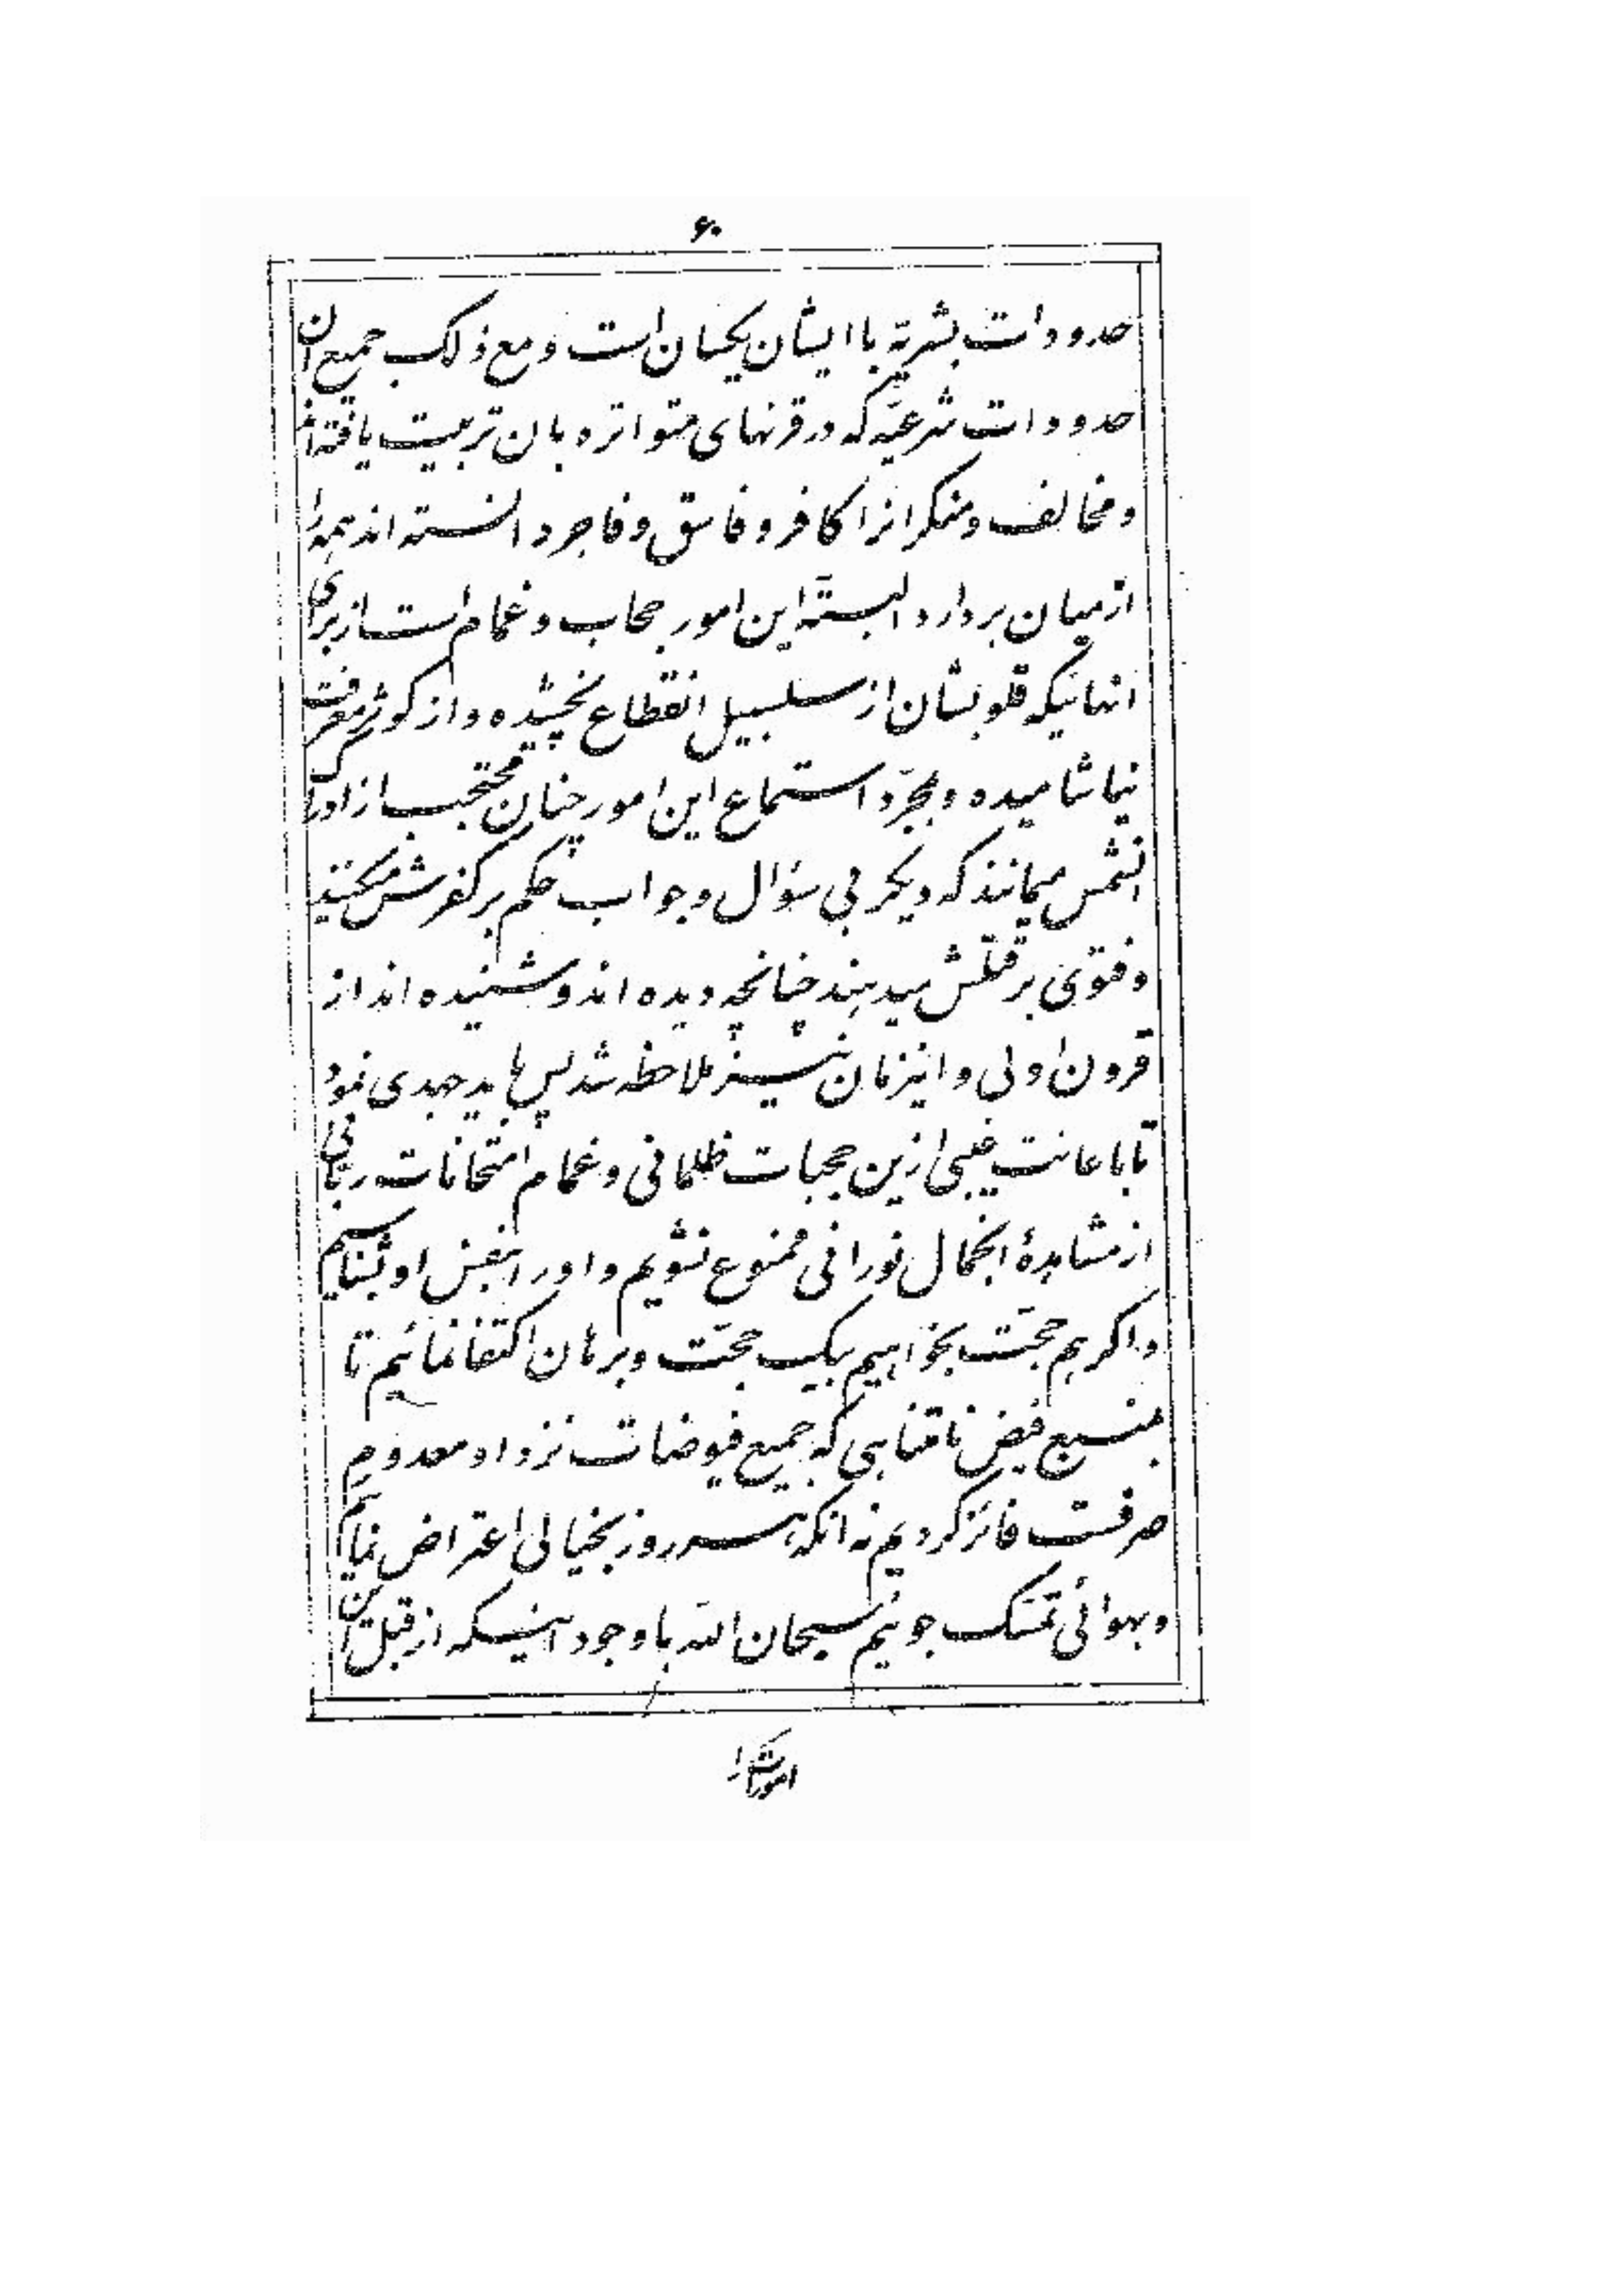 ۶۰
حدودات بشریّه با ایشان یکسان است و مع ذلک جمیع ان
حدودات شرعیّه که در قرنهای متواتره بان تربیت یافته‌اند
و مخالف و منکر انرا کافر و فاسق و فاجر دانسته اند همه را
از میان بردارد البتّه این امور حجاب و غمام است از برای
انهائیکه قلوبشان از سلسبیل انقطاع نچشیده و از کوثر معرفت
نیاشامیده و بمجرّد استماع این امور چنان محتجب از ادراک
انشمس میمانند که دیگر بی سؤال و جواب حکم بر کفرش میکنند
و فتوی بر قتلش میدهند چنانچه دیده اند و شنیده اند از
قرون اولی و اینزمان نیز ملاحظه شد پس باید جهدی نمود
تا باعانت غیبی ازین حجبات ظلمانی و غمام امتحانات ربّانی
از مشاهدهٔ انجمال نورانی ممنوع نشویم و او را بنفس او بشناسیم
و اگر هم حجّت بخواهیم بیک حجّت و برهان اکتفا نمائیم تا
بمنبع فیض نامتناهی که جمیع فیوضات نزد او معدوم
صرفست فائز گردیم نه انکه هر روز بخیالی اعتراض نمائیم
و بهوائی تمسّک جوئیم سبحان اللّه با وجود اینکه از قبل این
امورات را